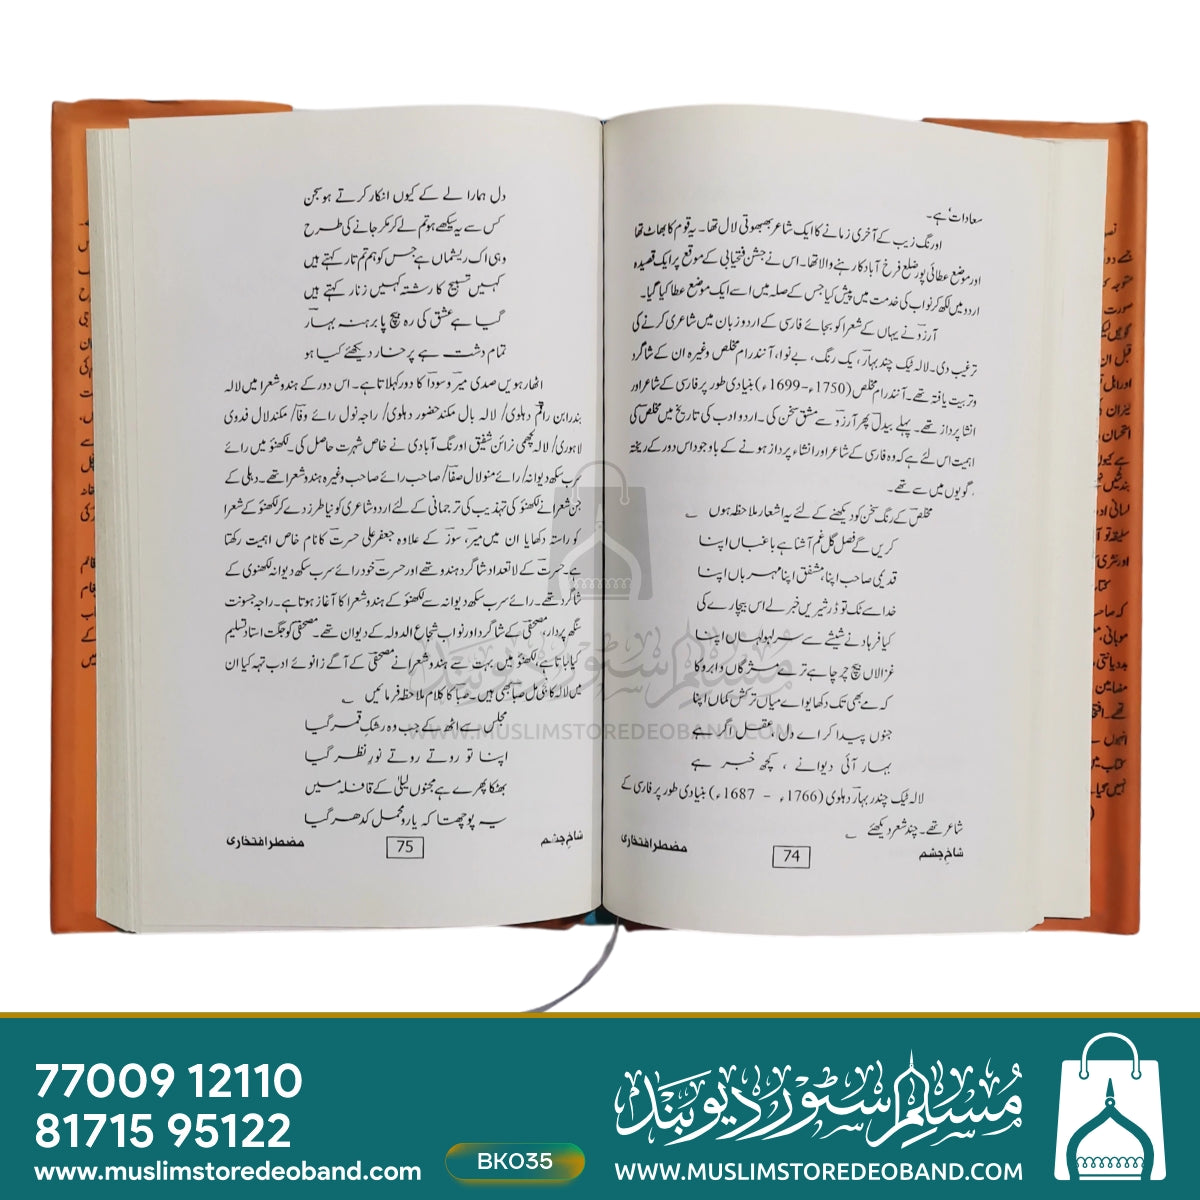 سعادات' ہے۔
اورنگ زیب کے آخری زمانے کا ایک شاعر بھبھوتی لال تھا۔ یہ قوم کا بھاٹ تھا
اور موضع عطائی پور ضلع فرخ آباد کا رہنے والا تھا۔ اس نے جشن فتحیابی کے موقع پر ایک قصیدہ
اردو میں لکھ کر نواب کی خدمت میں پیش کیا جس کے صلہ میں اسے ایک موضع عطا کیا گیا۔
آرزو نے یہاں کے شعرا کو بجائے فارسی کے اردو زبان میں شاعری کرنے کی
ترغیب دی۔ لالہ ٹیک چند بہار، یک رنگ، بے نوا، آنند رام مخلص وغیرہ ان کے شاگرد
و تربیت یافتہ تھے۔ آنند رام مخلص (1750ء-1699ء) بنیادی طور پر فارسی کے شاعر اور
انشا پرداز تھے۔ پہلے بیدل پھر آرزو سے مشق سخن کی۔ اردو ادب کی تاریخ میں مخلص کی
اہمیت اس لئے ہے کہ وہ فارسی کے شاعر اور انشاء پرداز ہونے کے باوجود اس دور کے ریختہ
گویوں میں سے تھے۔
مخلص کے رنگ سخن کو دیکھنے کے لئے یہ اشعار ملاحظہ ہوں
کریں گے فصل گل غم آشنا ہے باغباں اپنا
قدیمی صاحب اپنا، مشفق اپنا مہرباں اپنا
خدا سے ٹک تو ڈر شیریں خبر لے اس بیچارے کی
کیا فرہاد نے شیشے سے سر لہولہاں اپنا
غزالاں بیچ چرچا ہے ترے مژگاں و ابرو کا
کہ مے بھی تک دکھا یو اے میاں ترکش کماں اپنا
جنوں پیدا کر اے دل، عقل اگر ہے
بہار آئی دیوانے ، کچھ خبر ہے
لالہ ٹیک چندر بہار دہلوی (1766ء - 1687ء) بنیادی طور پر فارسی کے
شاعر تھے۔ چند شعر دیکھئے
شاخِ چشم
74
مضطر افتخاری
دل ہمارا لے کے کیوں انکار کرتے ہو سجن
کس سے یہ سیکھے ہو تم لے کر مکر جانے کی طرح
وہی اک ریشماں ہے جس کو ہم تم تار کہتے ہیں
کہیں تسبیح کا رشتہ کہیں زنار کہتے ہیں
گیا ہے عشق کی رہ بیچ پا برہنہ بہار
تمام دشت ہے پر خار دیکھئے کیا ہو
اٹھارہویں صدی میر و سودا کا دور کہلاتا ہے۔ اس دور کے ہندو شعرا میں لالہ
بندرابن راقم دہلوی/ لالہ بال مکند حضور دہلوی/ راجہ نول رائے وفا/ مکند لال فدوی
لاہوری/ لالہ لچھمی نرائن شفیق اورنگ آبادی نے خاص شہرت حاصل کی۔ لکھنؤ میں رائے
سرب سکھ دیوانہ/ رائے منولال صفا/ صاحب رائے صاحب وغیرہ ہندو شعرا تھے۔ دہلی کے
جن شعرا نے لکھنؤ کی تہذیب کی ترجمانی کے لئے اردو شاعری کو نیا طرز دے کر لکھنؤ کے شعرا
کو راستہ دکھایا ان میں میر، سوز کے علاوہ جعفر علی حسرت کا نام خاص اہمیت رکھتا
ہے۔ حسرت کے لاتعداد شاگرد ہندو تھے اور حسرت خود رائے سرب سکھ دیوانہ لکھنوی کے
شاگرد تھے۔ رائے سرب سکھ دیوانہ سے لکھنؤ کے ہندو شعرا کا آغاز ہوتا ہے۔ راجہ جسونت
سنگھ پروار، مصحفی کے شاگرد اور نواب شجاع الدولہ کے دیوان تھے۔ مصحفی کو جگت استاد تسلیم
کیا جاتا ہے، لکھنؤ میں بہت سے ہندو شعرا نے مصحفی کے آگے زانوئے ادب تہہ کیا ان
میں لالہ کانجی مل صبا بھی ہیں۔ صبا کا کلام ملاحظہ فرمائیں
مجلس سے اٹھ کے جب وہ رشکِ قمر گیا
اپنا تو روتے روتے نورِ نظر گیا
بھٹکا پھرے ہے مجنوں لیلیٰ کے قافلہ میں
یہ پوچھتا کہ یارو محمل کدھر گیا
شاخِ چشم
75
مضطر افتخاری
مسلم سٹور دیوبند
WWW.MUSLIMSTOREDEOBAND.COM
77009 12110
81715 95122
www.muslimstoredeoband.com
BK035
مسلم سٹور دیوبند
WWW.MUSLIMSTOREDEOBAND.COM